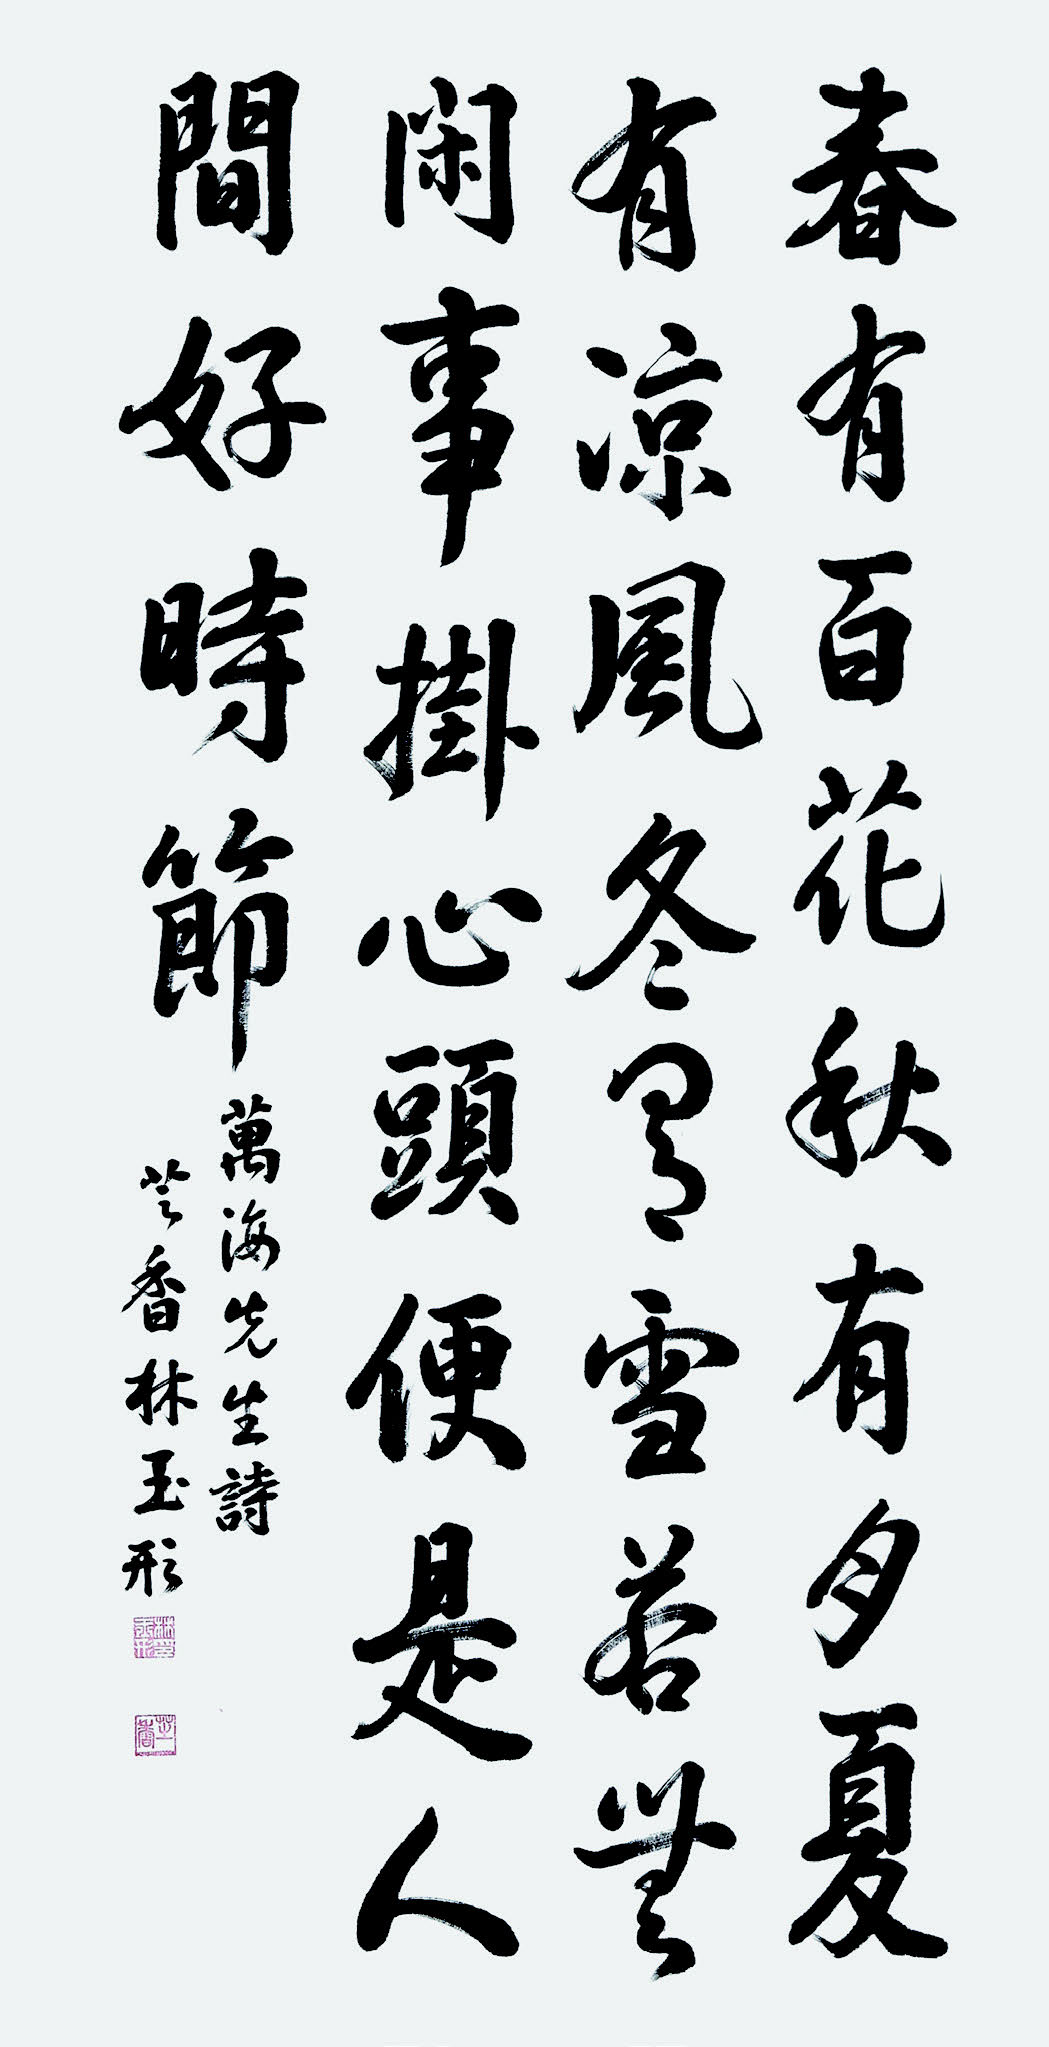 春有百花秋有月夏
有涼風冬有雪若無
閑事掛心頭便是人
間好時節
萬海先生詩
芝香林玉形